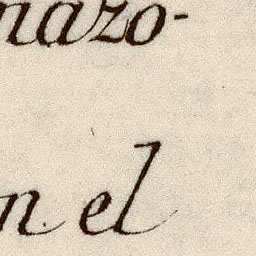 nazo-
n el